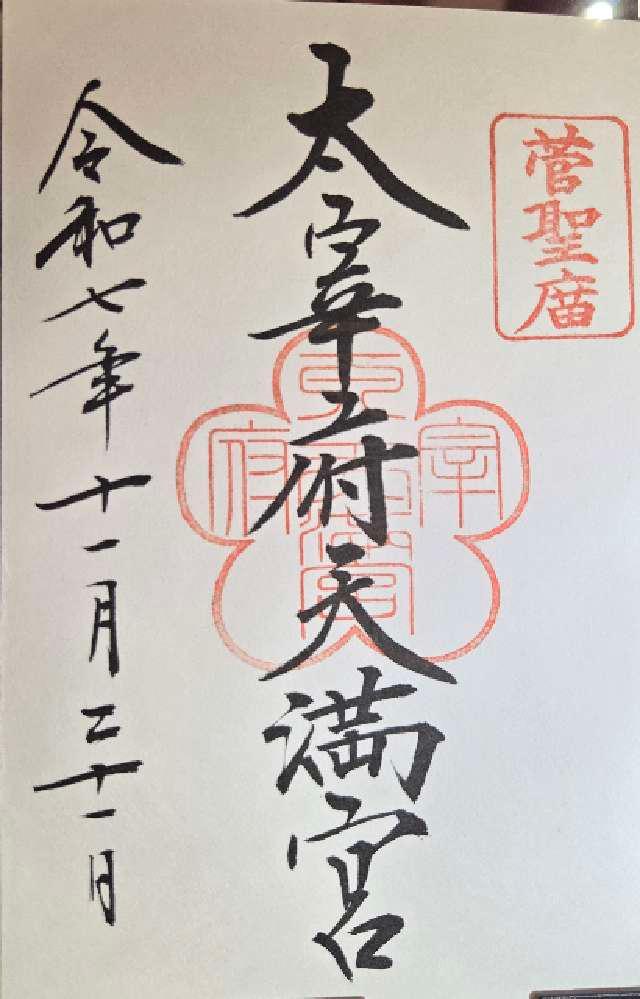 菅聖庿
太宰府天満宮
宰
府
令和七年十一月二十一日